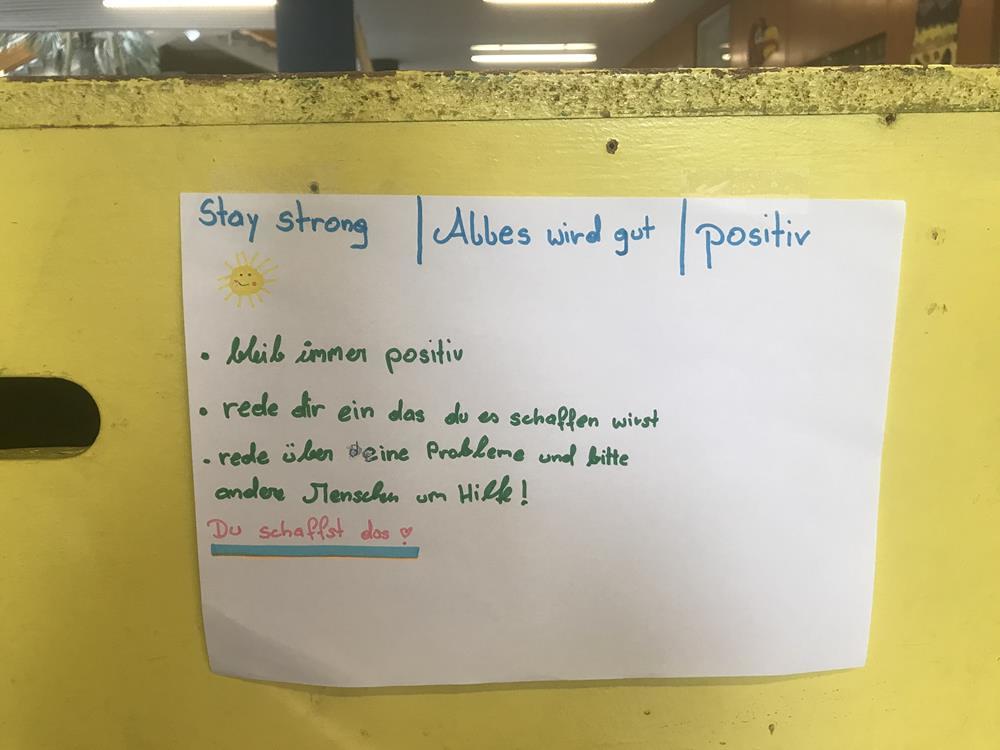 Stay strong | Alles wird gut | positiv
• bleib immer positiv
• rede dir ein das du es schaffen wirst
• rede über deine Probleme und bitte
andere Menschen um Hilfe!
Du schaffst das